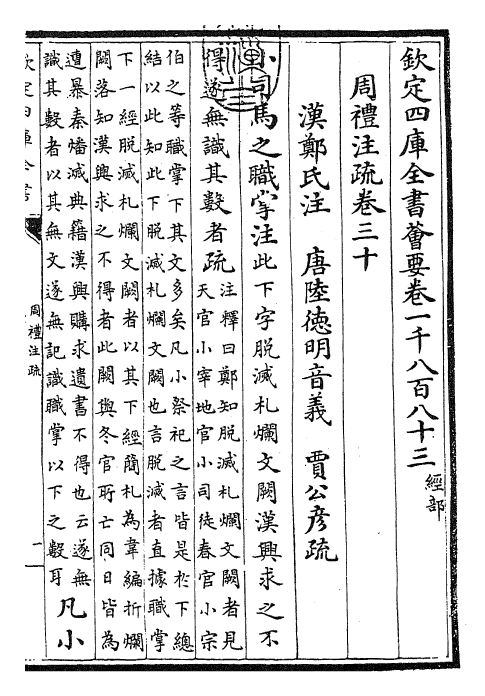 欽定四庫全書薈要卷一千八百八十三 經部
周禮注疏卷三十
漢鄭氏注 唐陸德明音義 賈公彥疏
小司馬之職掌注此下字脫滅札爛文闕漢興求之不
得遂無識其數者疏
注釋曰鄭知脫滅札爛文闕者見
天官小宰地官小司徒春官小宗
伯之等職掌下其文多矣凡小祭祀之言皆是於下總
結以此知此下脫滅札爛文闕也言脫滅者直據職掌
下一經脫滅札爛文闕者以其下經簡札為韋編折爛
闕落知漢興求之不得者此闕與冬官所亡同日皆為
遭暴秦燔滅典籍漢興購求遺書不得也云遂無
識其數者以其無文遂無記識職掌以下之數耳
凡小
欽定四庫全書
周禮注疏
一